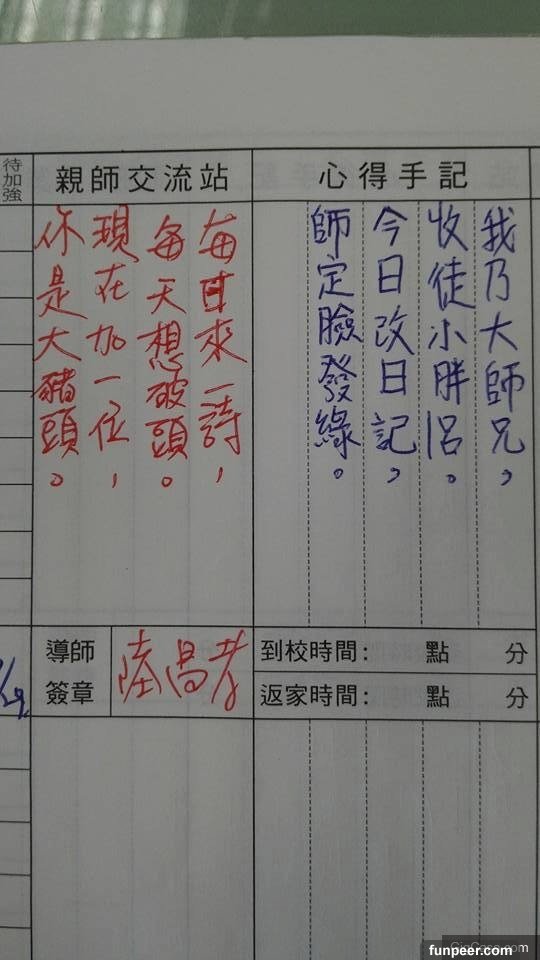 待加強
親師交流站
心得手記
我乃大師兄，
收徒小胖呂。
今日改日記，
師定臉發綠。
每日來一詩，
每天想破頭。
現在加一位，
你是大豬頭。
導師
簽章
到校時間： 點 分
返家時間： 點 分
funpeer.com